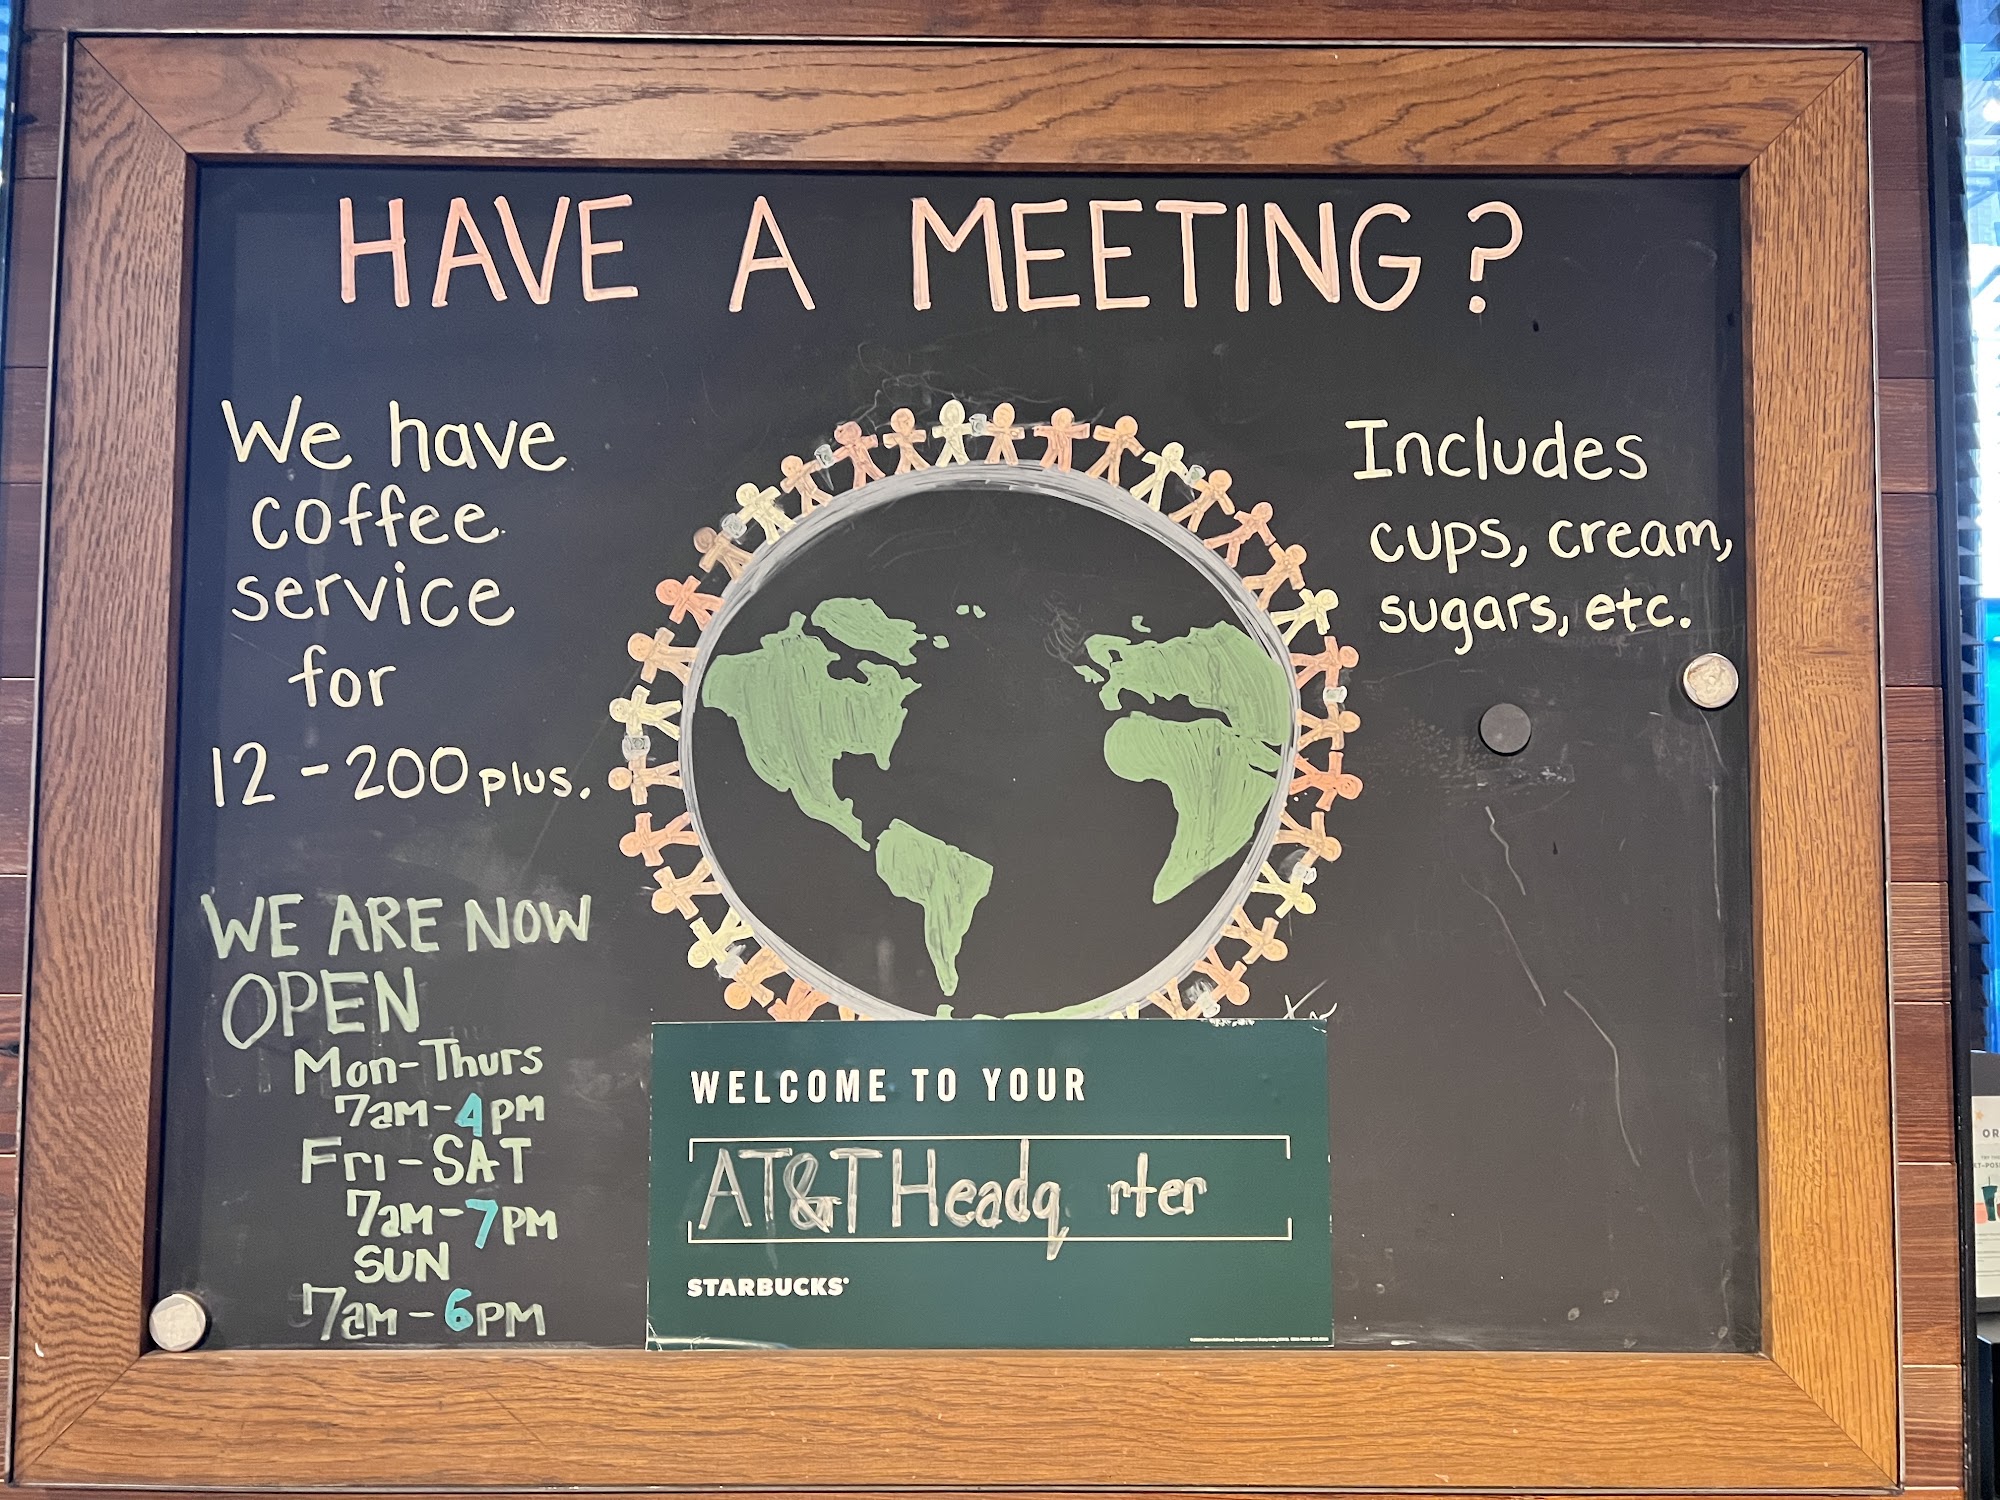 HAVE A MEETING?
We have
coffee
service
for
12 - 200 plus.
Includes
cups, cream,
sugars, etc.
WE ARE NOW
OPEN
Mon-Thurs
7am-4pm
Fri-SAT
7am-7pm
SUN
7am-6PM
WELCOME TO YOUR
AT&T Headq rter
STARBUCKS
OR